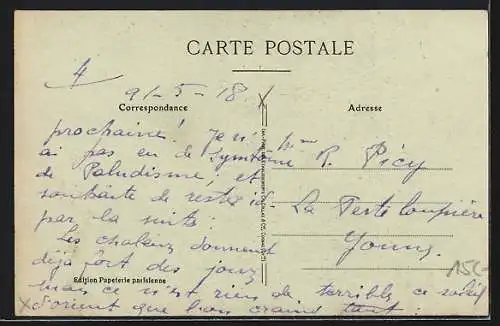 CARTE POSTALE
4
91-5-18
Correspondance
Adresse
prochaine! Je n'
ai pas eu de Symptôme
de Paludisme, et
souhaite de rester ici
par la suite.
Les chaleurs donnent
déjà fort des jours
mais ce n'est rien de terribles ce soleil
d'orient que l'on craint tant.
Mme R. Picy
La Ferté Loupière
Yonne
Edition Papeterie parisienne
150-